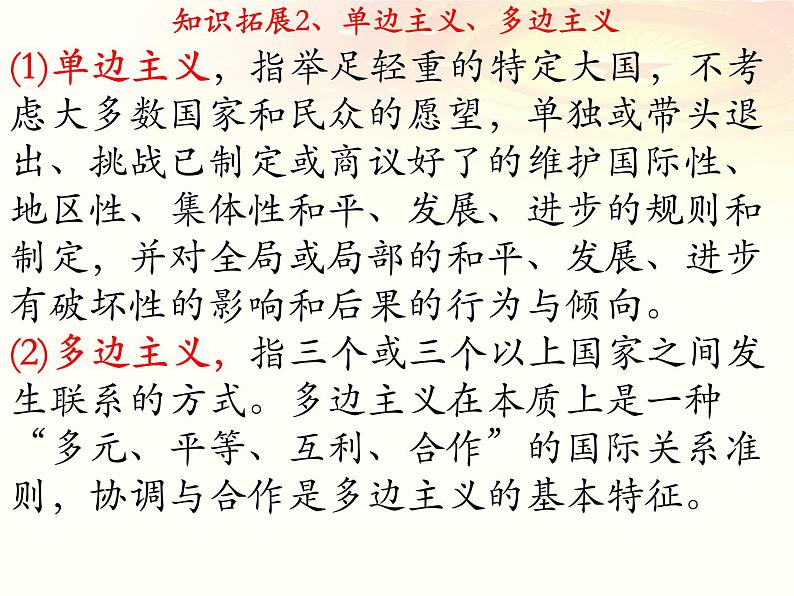 知识拓展2、单边主义、多边主义
(1)单边主义，指举足轻重的特定大国，不考
虑大多数国家和民众的愿望，单独或带头退
出、挑战已制定或商议好了的维护国际性、
地区性、集体性和平、发展、进步的规则和
制定，并对全局或局部的和平、发展、进步
有破坏性的影响和后果的行为与倾向。
(2)多边主义，指三个或三个以上国家之间发
生联系的方式。多边主义在本质上是一种
“多元、平等、互利、合作”的国际关系准
则，协调与合作是多边主义的基本特征。